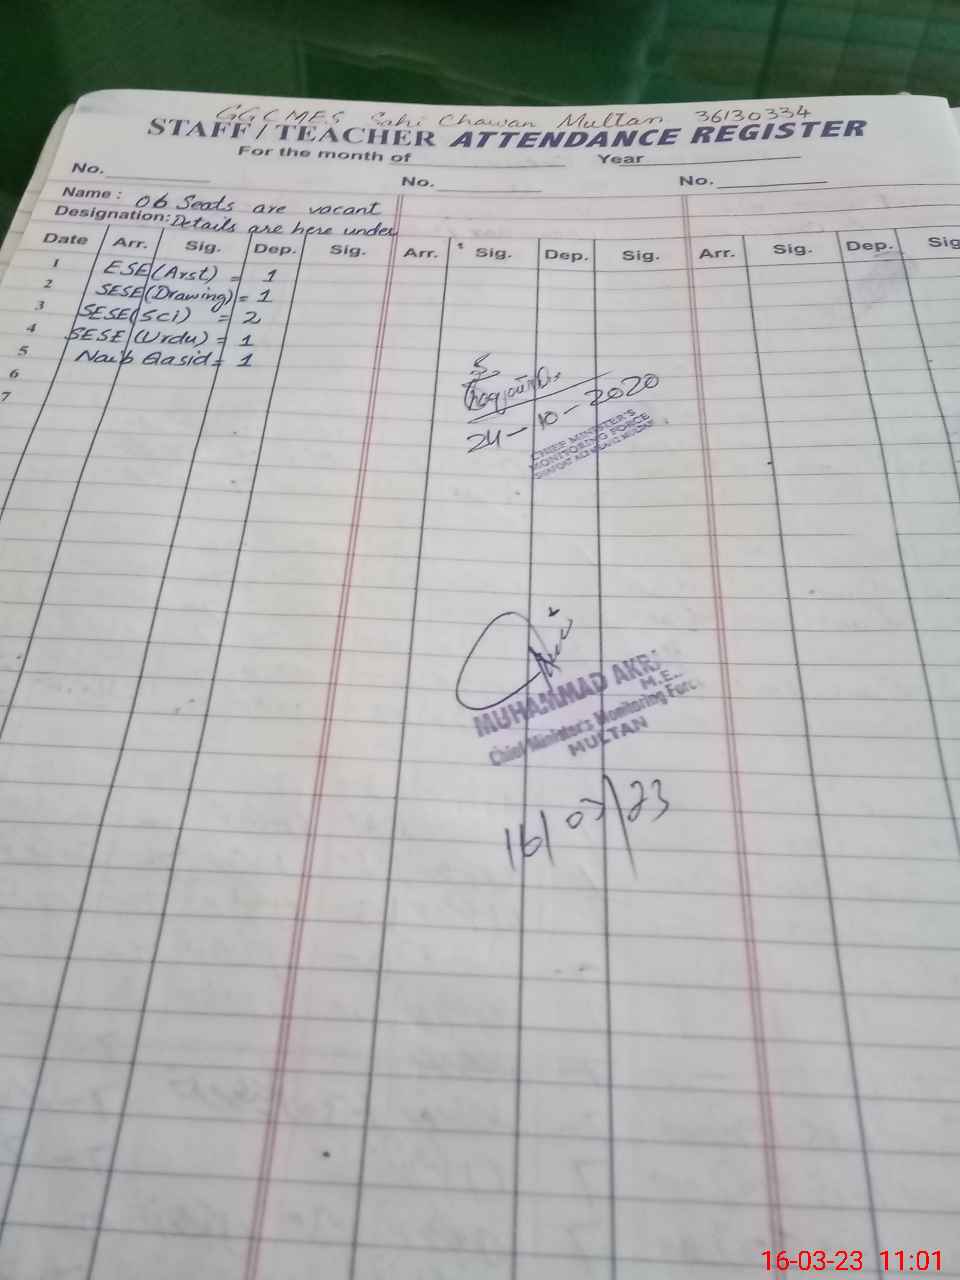 GGCMES Sahi Chawan Multan 36130334
STAFF / TEACHER ATTENDANCE REGISTER
For the month of Year
No. No. No.
Name : 06 Seats are vacant
Designation: Details are here under
Date Arr. Sig. Dep. Sig. Arr. Sig. Dep. Sig. Arr. Sig. Dep. Sig
1 ESE(Arst) = 1
2 SESE(Drawing) = 1
3 SESE(Sci) = 2
4 SESE(Urdu) = 1
5 Naib Qasid = 1
6
7
24-10-2020
CHIEF MINISTER'S
MONITORING FORCE
MUHAMMAD AKR
M.E.
Chief Minister's Monitoring Force
MULTAN
16/03/23
16-03-23 11:01